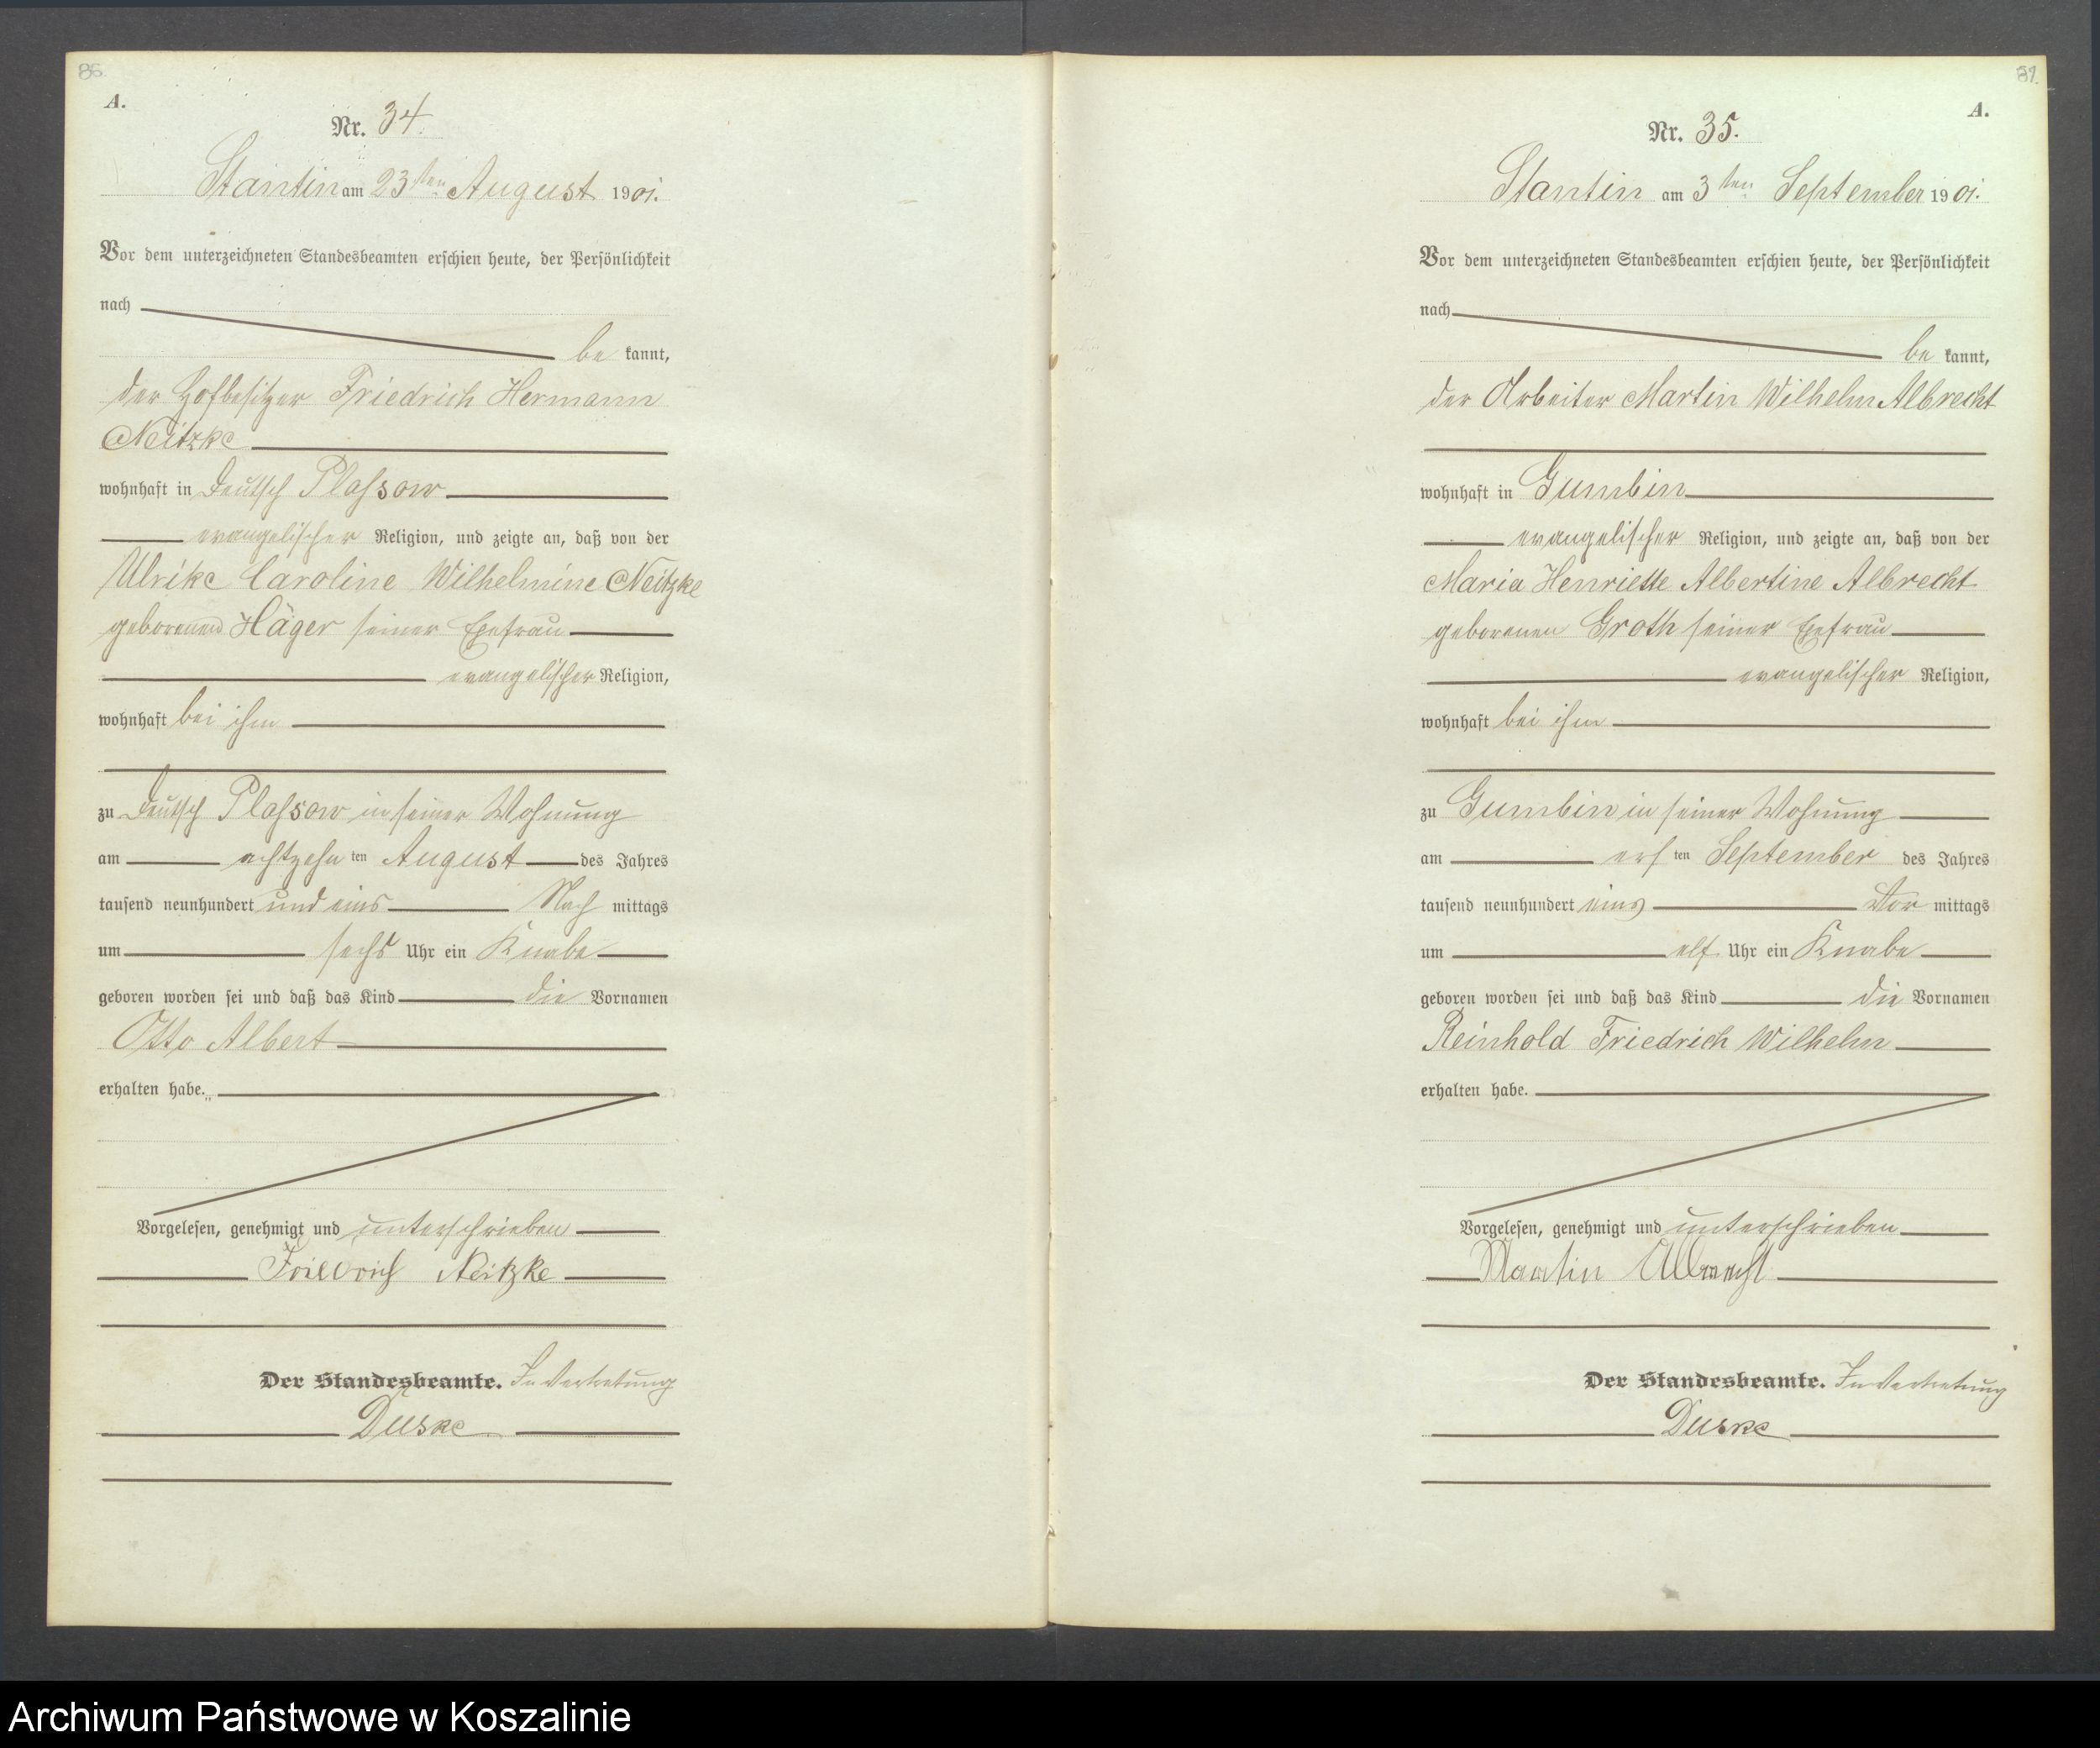 86.
A.
Nr. 34.
Stantin am 23ten August 1901.
Vor dem unterzeichneten Standesbeamten erschien heute, der Persönlichkeit
nach
be kannt,
der Hofbesitzer Friedrich Hermann
Neitzke
wohnhaft in Deutsch Plassow
evangelischer Religion, und zeigte an, daß von der
Ulrike Caroline Wilhelmine Neitzke
geborenen Häger seiner Ehefrau
evangelischer Religion,
wohnhaft bei ihm
zu Deutsch Plassow in seiner Wohnung
am achtzehn ten August des Jahres
tausend neunhundert und eins Nach mittags
um sechs Uhr ein Knabe
geboren worden sei und daß das Kind die Vornamen
Otto Albert
erhalten habe.
Vorgelesen, genehmigt und unterschrieben
Friedrich Neitzke
Der Standesbeamte. In Vertretung
Duske
A.
Nr. 35.
Stantin am 3ten September 1901.
Vor dem unterzeichneten Standesbeamten erschien heute, der Persönlichkeit
nach
be kannt,
der Arbeiter Martin Wilhelm Albrecht
wohnhaft in Gumbin
evangelischer Religion, und zeigte an, daß von der
Maria Henriette Albertine Albrecht
geborenen Groth seiner Ehefrau
evangelischer Religion,
wohnhaft bei ihm
zu Gumbin in seiner Wohnung
am ers ten September des Jahres
tausend neunhundert eins Vor mittags
um elf Uhr ein Knabe
geboren worden sei und daß das Kind die Vornamen
Reinhold Friedrich Wilhelm
erhalten habe.
Vorgelesen, genehmigt und unterschrieben
Martin Albrecht
Der Standesbeamte. In Vertretung
Duske
Archiwum Państwowe w Koszalinie